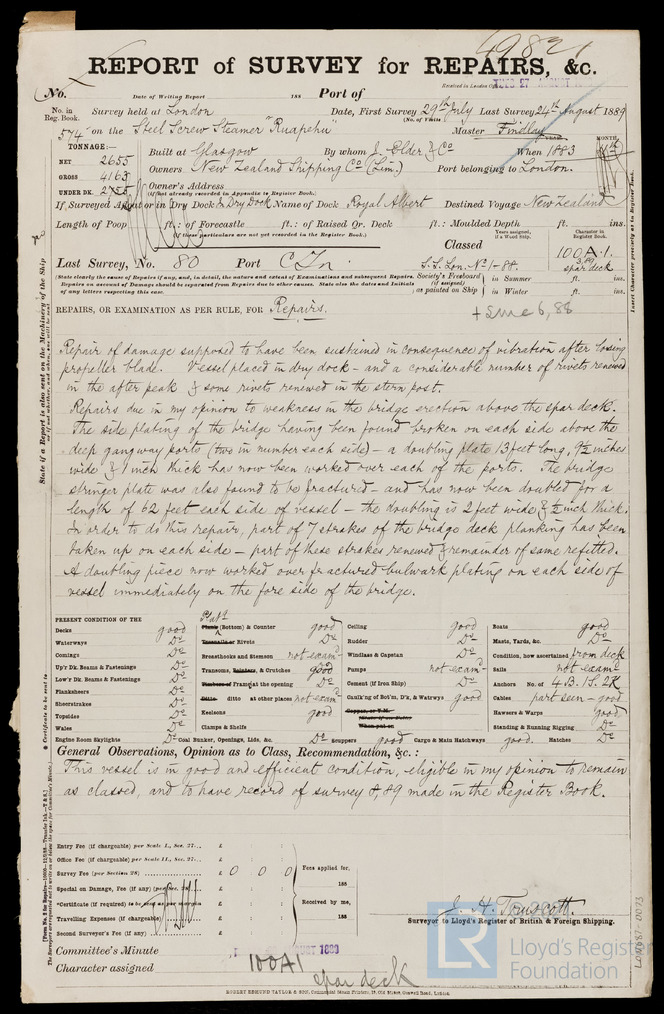 49821
REPORT of SURVEY for REPAIRS, &c.
No. Date of Writing Report 188 Port of Received in London
No. in Reg. Book. Survey held at London Date, First Survey 29th July Last Survey 24th August 1889
574 on the Steel Screw Steamer "Ruapehu" No. of Visits Master Findlay
TONNAGE:—
NET 2655 Built at Glasgow By whom J. Elder & Co When 1883 MONTH
GROSS 4163 Owners New Zealand Shipping Co (Lim.) Port belonging to London.
UNDER DK. Owner's Address
(if not already recorded in Appendix to Register Book.)
If Surveyed Afloat or in Dry Dock In Dry Dock Name of Dock Royal Albert Destined Voyage New Zealand
Length of Poop ft.: of Forecastle ft.: of Raised Qr. Deck ft.: Moulded Depth ft. ins.
(If these particulars are not yet recorded in the Register Book.) Years assigned, if a Wood Ship. Character in Register Book.
Classed 100A.1.
3,89
spar deck
Last Survey, No. 80 Port S.S. Lon. No 1-88.
(State clearly the cause of Repairs if any, and, in detail, the nature and extent of Examinations and subsequent Repairs. Repairs on account of Damage should be separated from Repairs due to other causes. State also the dates and Initials of any letters respecting this case.
Society's Freeboard (if assigned) as painted on Ship in Summer ft. ins.
in Winter ft. ins.
REPAIRS, OR EXAMINATION AS PER RULE, FOR Repairs.
6,88
Repair of damage supposed to have been sustained in consequence of vibration after losing
propeller blade. Vessel placed in dry dock - and a considerable number of rivets renewed
in the after peak & some rivets renewed in the stern post.
Repairs due in my opinion to weakness in the bridge erection above the spar deck.
The side plating of the bridge having been found broken on each side above the
deep gangway ports (two in number each side) - a doubling plate 13 feet long, 9½ inches
wide & 1 inch thick has now been worked over each of the ports. The bridge
stringer plate was also found to be fractured - and has now been doubled for a
length of 62 feet each side of vessel - the doubling is 2 feet wide & ½ inch thick.
In order to do this repair, part of 7 strakes of the bridge deck planking has been
taken up on each side - part of these strakes renewed & remainder of same refitted.
A doubling piece now worked over fractured bulwark plating on each side of
vessel immediately on the fore side of the bridge.
PRESENT CONDITION OF THE
Decks good Plank (Bottom) & Counter good Ceiling good Boats good
Waterways Do Treenails or Rivets Do Rudder Do Masts, Yards, &c. Do
Comings Do Breasthooks and Stemson not examd Windlass & Capstan Do Condition, how ascertained from deck
Up'r Dk. Beams & Fastenings Do Transoms, Pointers, & Crutches good Pumps not examd Sails not examd
Low'r Dk. Beams & Fastenings Do Timbers or Frames at the opening Do Cement (if Iron Ship) Do Anchors No. of 4B. 1S. 2K
Planksheers Do Ditto ditto at other places not examd Caulk'ng of Bot'm, D'k, & Watrways good Cables part seen - good
Sheerstrakes Do Keelsons good Copper, or Y.M. Hawsers & Warps good
Topsides Do Clamps & Shelfs Standing & Running Rigging Do
Wales Do
Engine Room Skylights Do Coal Bunker, Openings, Lids, &c. Do Scuppers good Cargo & Main Hatchways good. Hatches Do
General Observations, Opinion as to Class, Recommendation, &c.:
This vessel is in good and efficient condition, eligible in my opinion to remain
as classed, and to have record of survey 8,89 made in the Register Book.
Entry Fee (if chargeable) per Scale I., Sec. 27... £
Office Fee (if chargeable) per Scale II., Sec. 27... £
Survey Fee (per Section 28) £ 0 0 0 Fees applied for,
Special on Damage, Fee (if any) (per Sec. 28) £ 188
*Certificate (if required) to be sent as per margin £ Received by me,
Travelling Expenses (if chargeable) £ 188
Second Surveyor's Fee (if any) £
J. H. Truscott.
Surveyor to Lloyd's Register of British & Foreign Shipping.
Committee's Minute AUGUST 1889
Character assigned 100A1
spar deck
LR Lloyd's Register Foundation
State if a Report is also sent on the Machinery of the Ship
* Certificate to be sent to